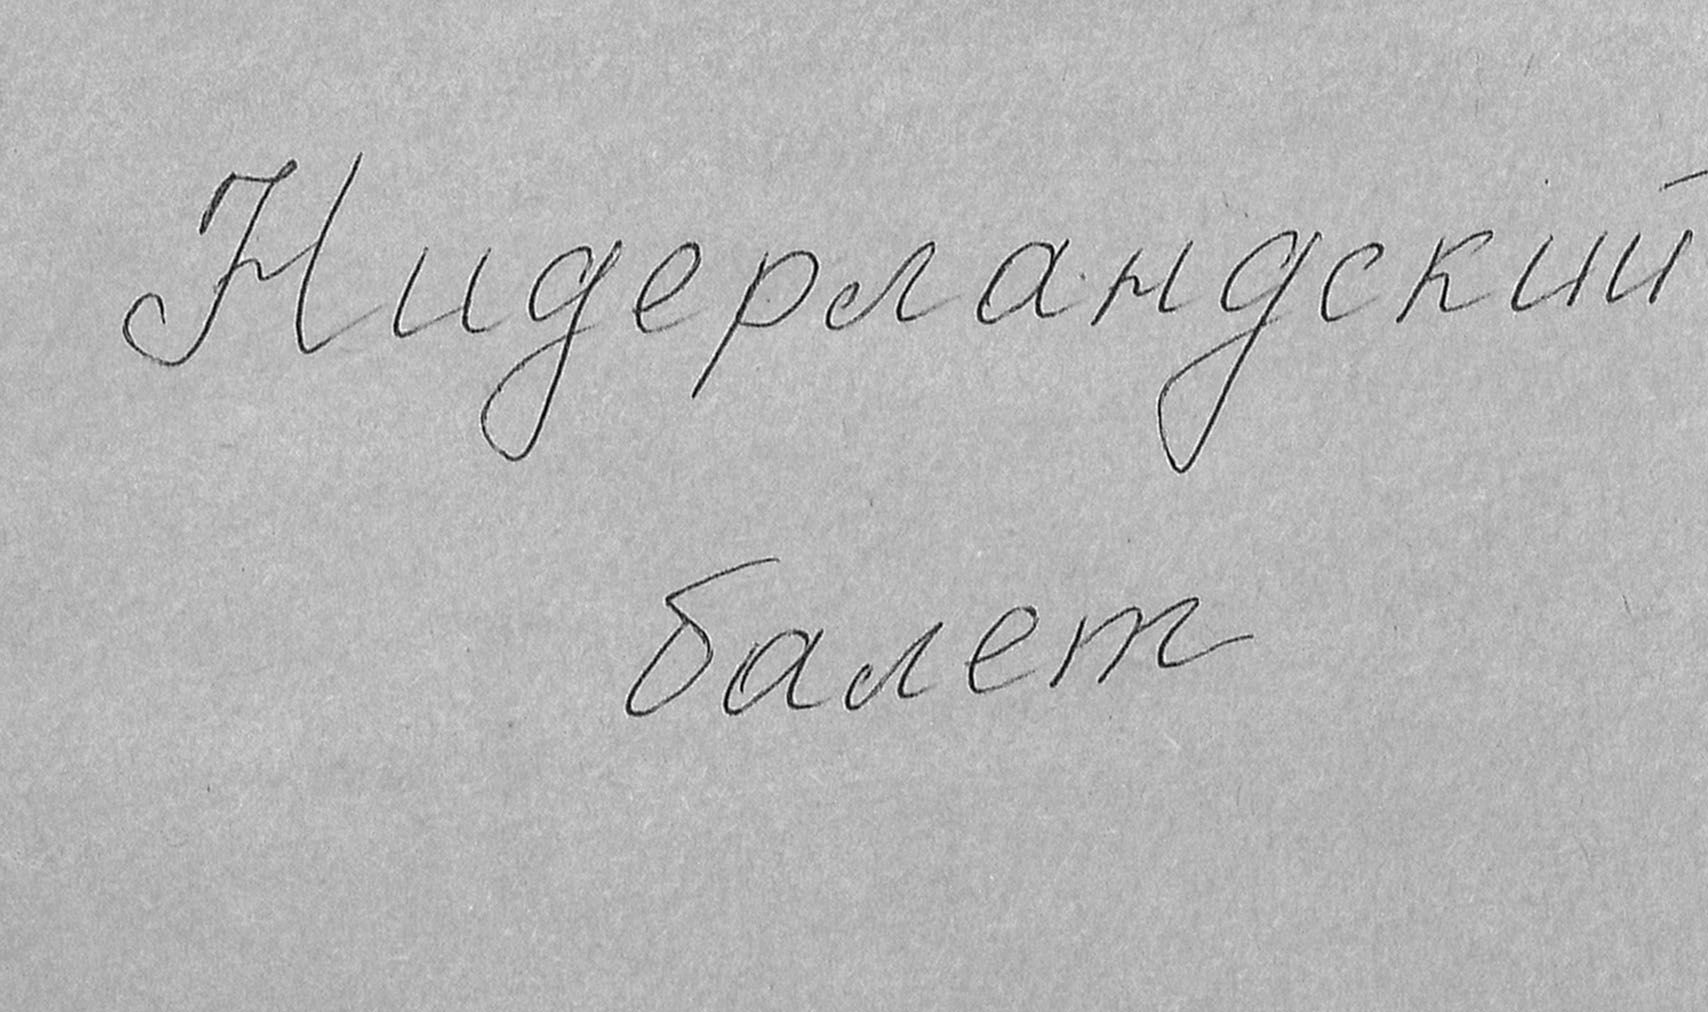 Нидерландский
балет